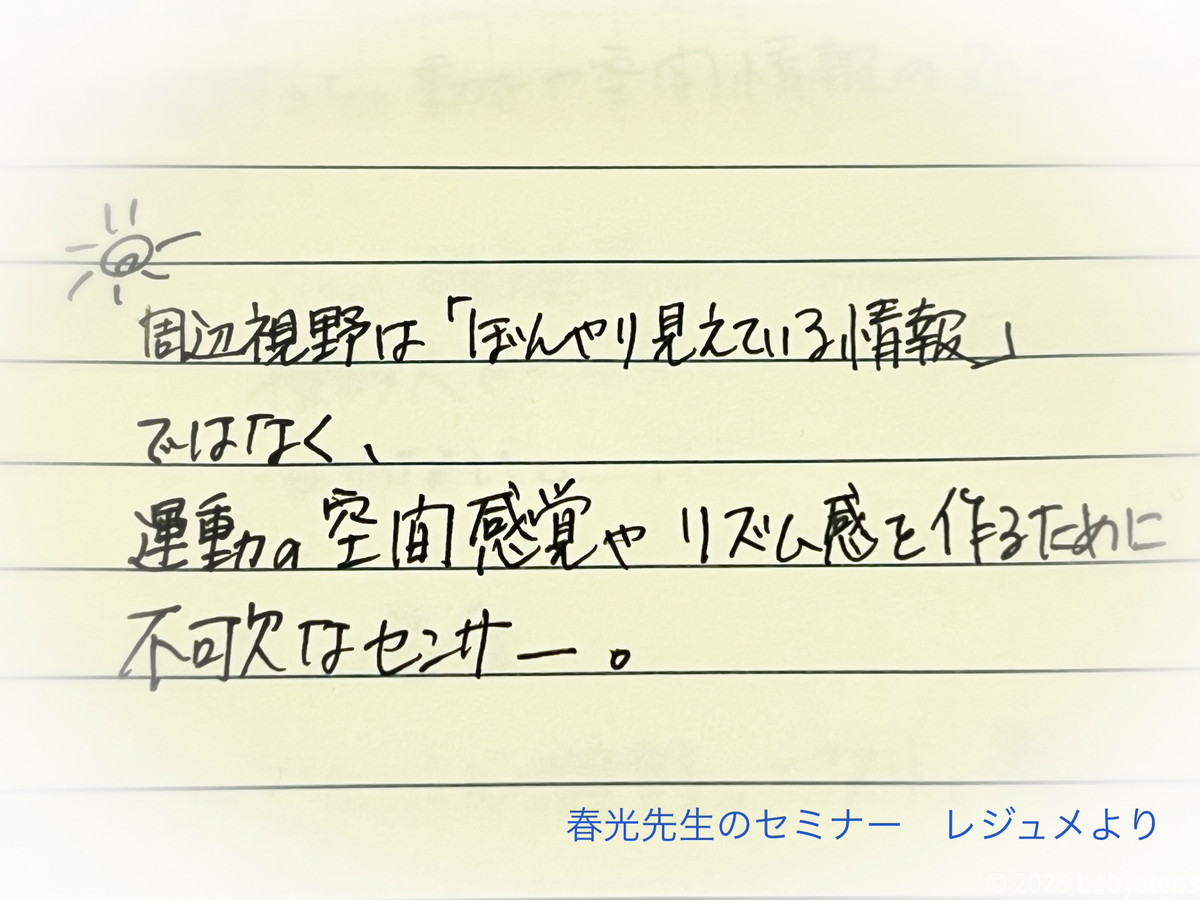 周辺視野は「ぼんやり見えている情報」
ではなく、
運動の空間感覚や リズム感を作るために
不可欠なセンサー。
春光先生のセミナー レジュメより